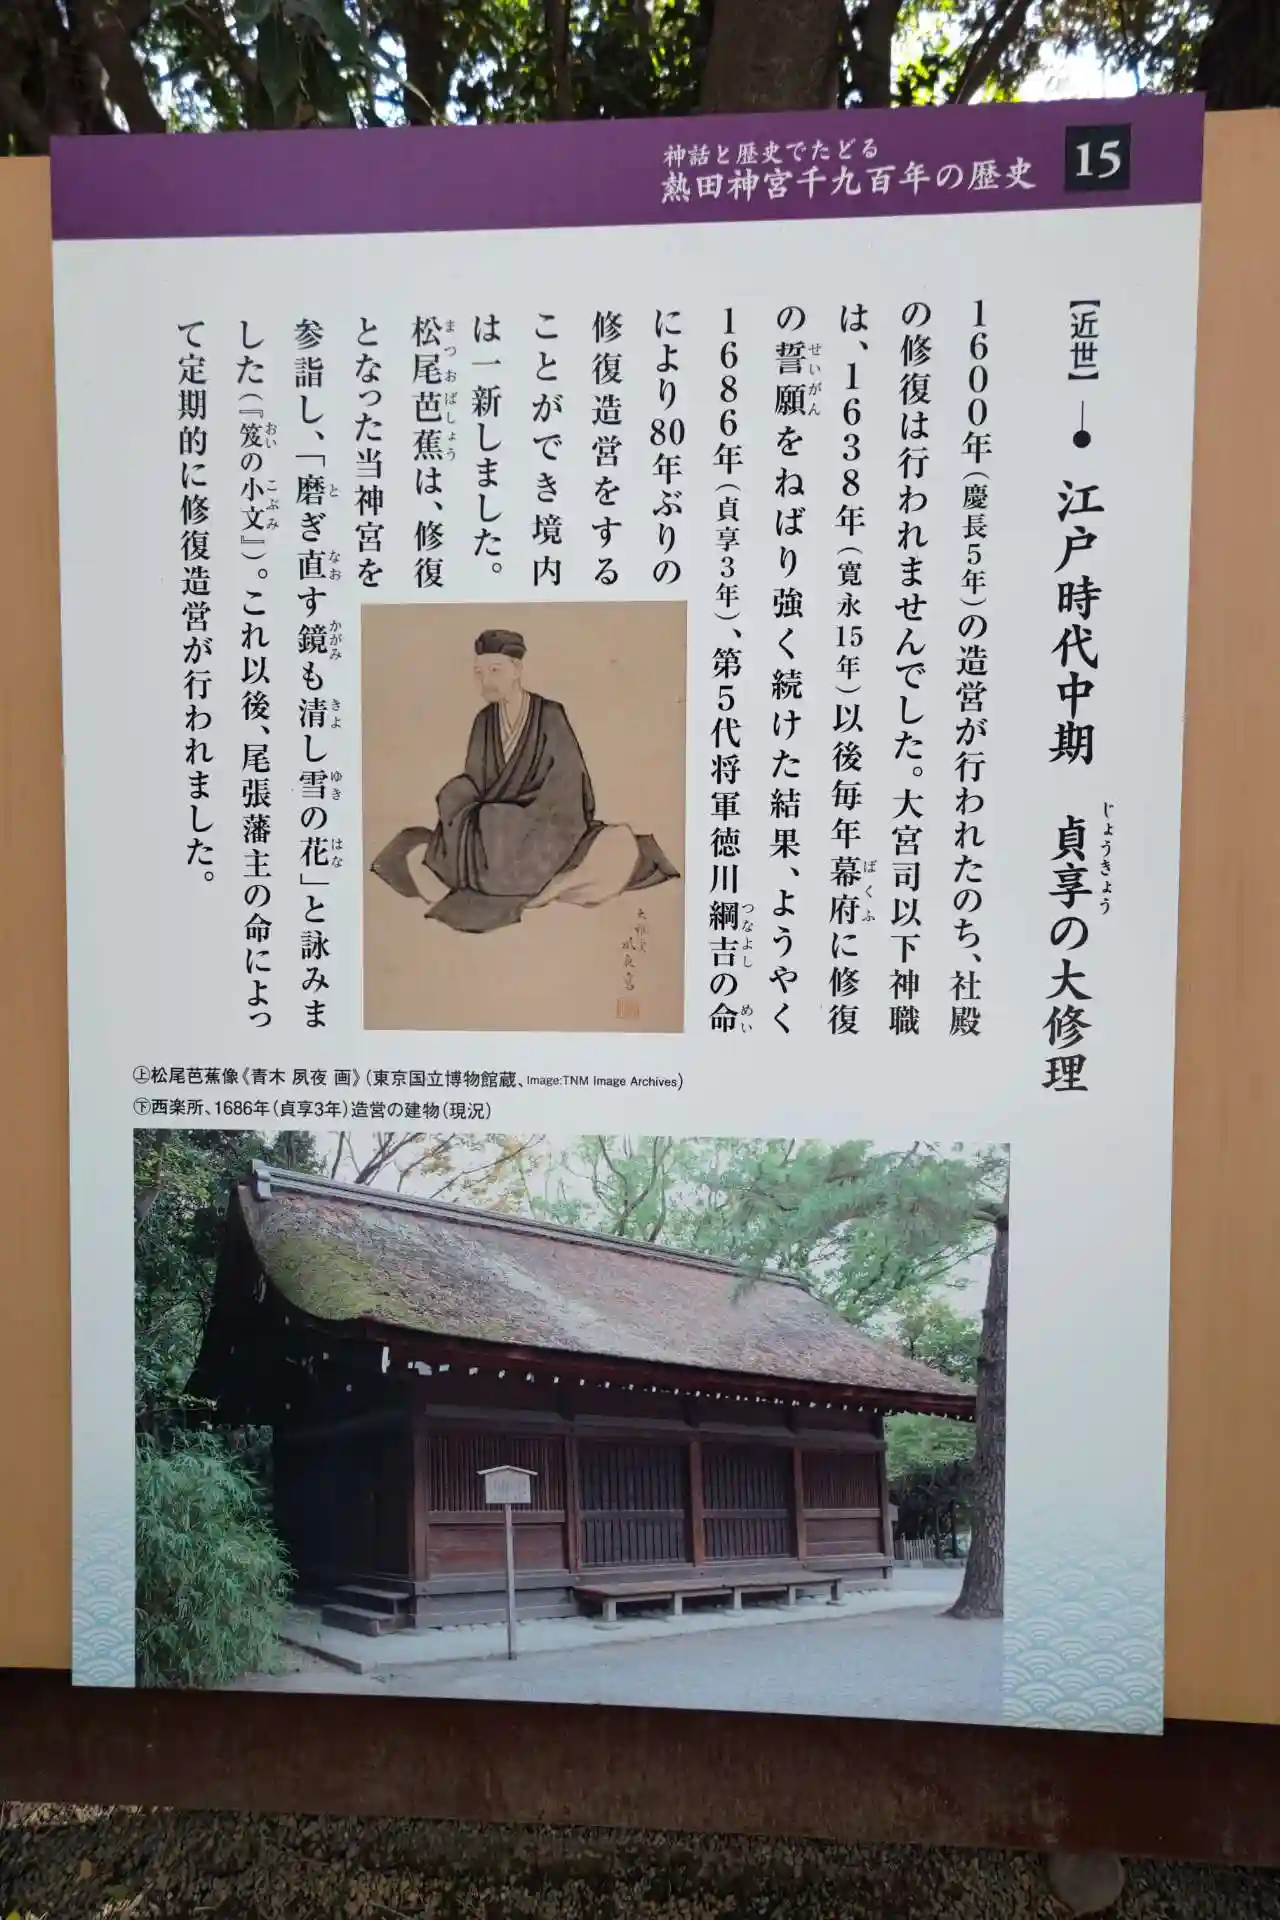 神話と歴史でたどる
熱田神宮千九百年の歴史
15
【近世】 江戸時代中期 貞享の大修理
じょうきょう
1600年(慶長5年)の造営が行われたのち、社殿
の修復は行われませんでした。大宮司以下神職
は、1638年(寛永15年)以後毎年幕府に修復
ばくふ
の誓願をねばり強く続けた結果、ようやく
せいがん
1686年(貞享3年)、第5代将軍徳川綱吉の命
つなよし めい
により80年ぶりの
修復造営をする
ことができ境内
は一新しました。
松尾芭蕉は、修復
まつおばしょう
となった当神宮を
参詣し、「磨ぎ直す鏡も清し雪の花」と詠みま
と なお かがみ きよ ゆき はな
した(『笈の小文』)。これ以後、尾張藩主の命によっ
おい こぶみ
て定期的に修復造営が行われました。
㊤松尾芭蕉像《青木 夙夜 画》(東京国立博物館蔵、Image:TNM Image Archives)
㊦西楽所、1686年(貞享3年)造営の建物(現況)